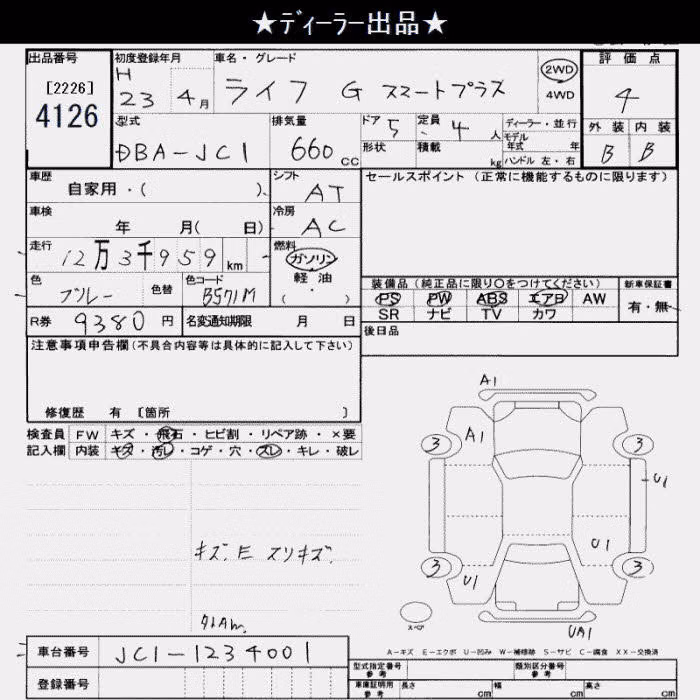 ★ディーラー出品★
出品番号 初度登録年月 車名・グレード 評価点
[2226] H 23 4月 ライフ G スマートプラス 2WD 4
4126 4WD
型式 排気量 ドア 5 定員 4 人 ディーラー・並行 外装 内装
DBA-JC1 660 CC 形状 積載 kg モデル年式 年 B B
ハンドル 左・右
車歴 シフト セールスポイント(正常に機能するものに限ります)
自家用・( ) AT
車検 冷房
年 月( 日) AC
走行 燃料
12万3千959km ガソリン
軽油
色 色替 色コード (・)
ブルー B571M
装備品(純正品に限り○をつけてください) 新車保証書
PS PW ABS エアB AW 有・無
SR ナビ TV カワ
R券 9380円 名変通知期限 月 日 後日品
注意事項申告欄(不具合内容等は具体的に記入して下さい)
修復歴 有 [箇所 ]
検査員 FW キズ・飛石・ヒビ割・リペア跡・×要
記入欄 内装 キズ・汚レ・コゲ・穴・スレ・キレ・破レ
A1
3 A1 3
U1
キズ、E スリキズ、
U1
3 U1 3
スペア
UA1
A-キズ E-エクボ U-凹み W-補修跡 S-サビ C-腐食 XX-交換済
車台番号 JC1-1234001 型式指定番号 参考 類別区分番号 参考
登録番号 車庫証明用 参考 長さ cm 幅 cm 高さ cm